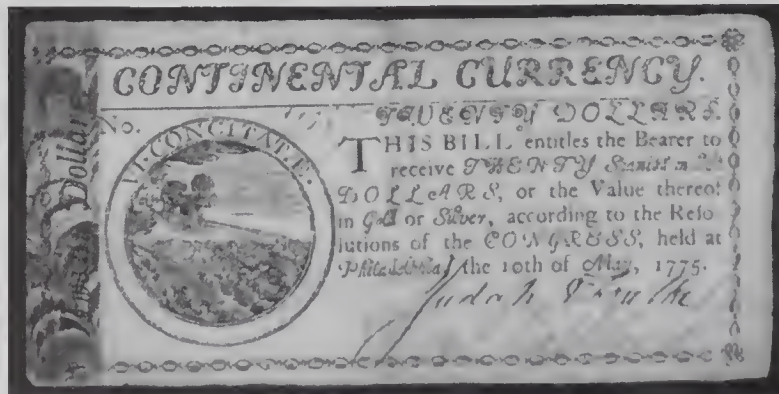 CONTINENTAL CURRENCY.
No.
TWENTY DOLLARS.
VI. CONCITATÆ.
THIS BILL entitles the Bearer to
receive TWENTY Spanish milled
DOLLARS, or the Value thereof
in Gold or Silver, according to the Reso
lutions of the CONGRESS, held at
Philadelphia, the 10th of May, 1775.
Dollar